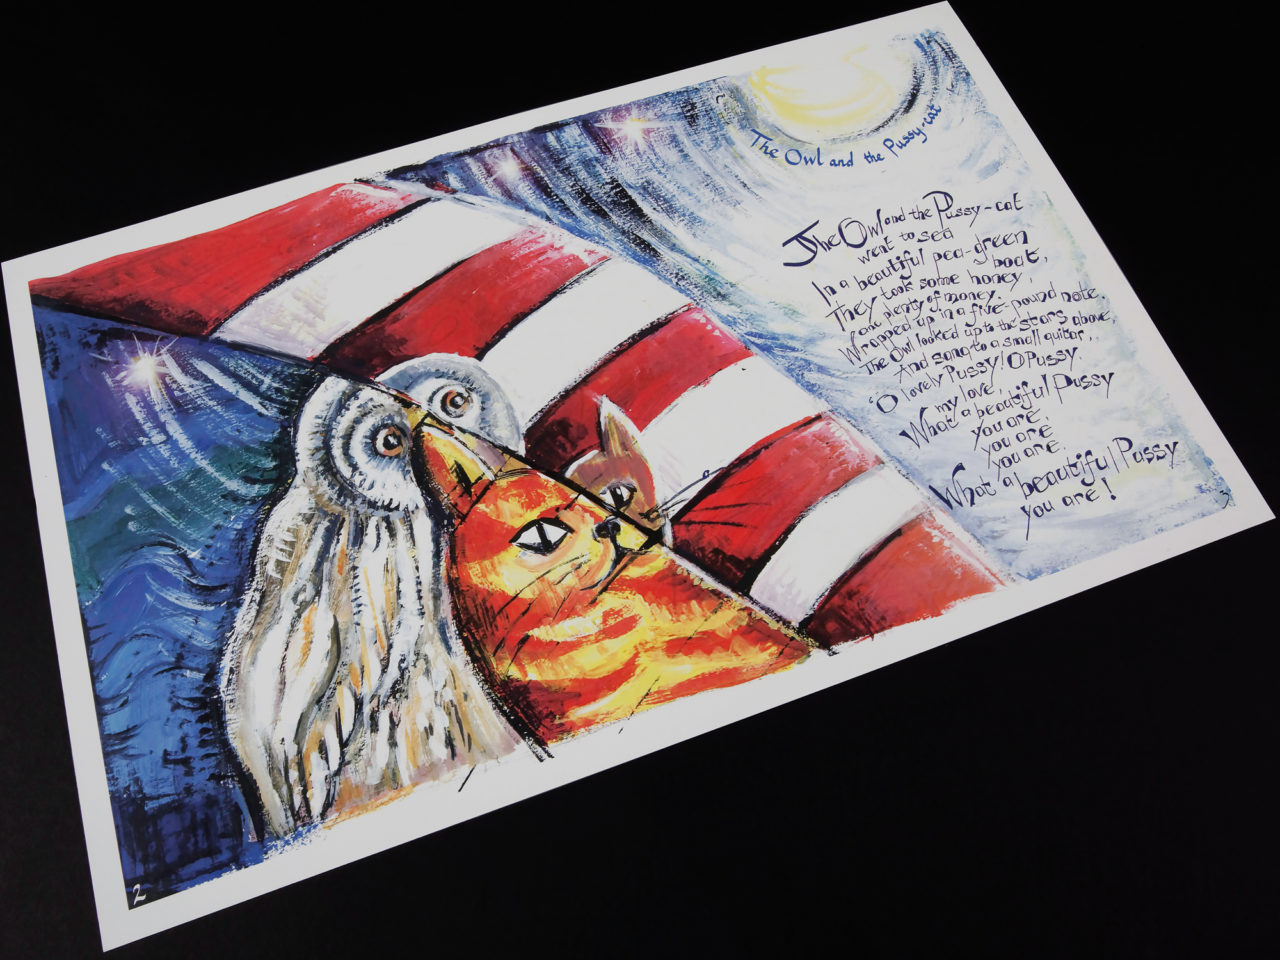 The Owl and the Pussy-cat
The Owl and the Pussy-cat
went to sea
In a beautiful pea-green
boat,
They took some honey,
and plenty of money.
Wrapped up in a five-pound note.
The Owl looked up to the stars above,
And sang to a small guitar,
"O lovely Pussy! O Pussy.
my love,
What a beautiful Pussy
you are,
you are
you are.
What a beautiful Pussy
you are!
2
3